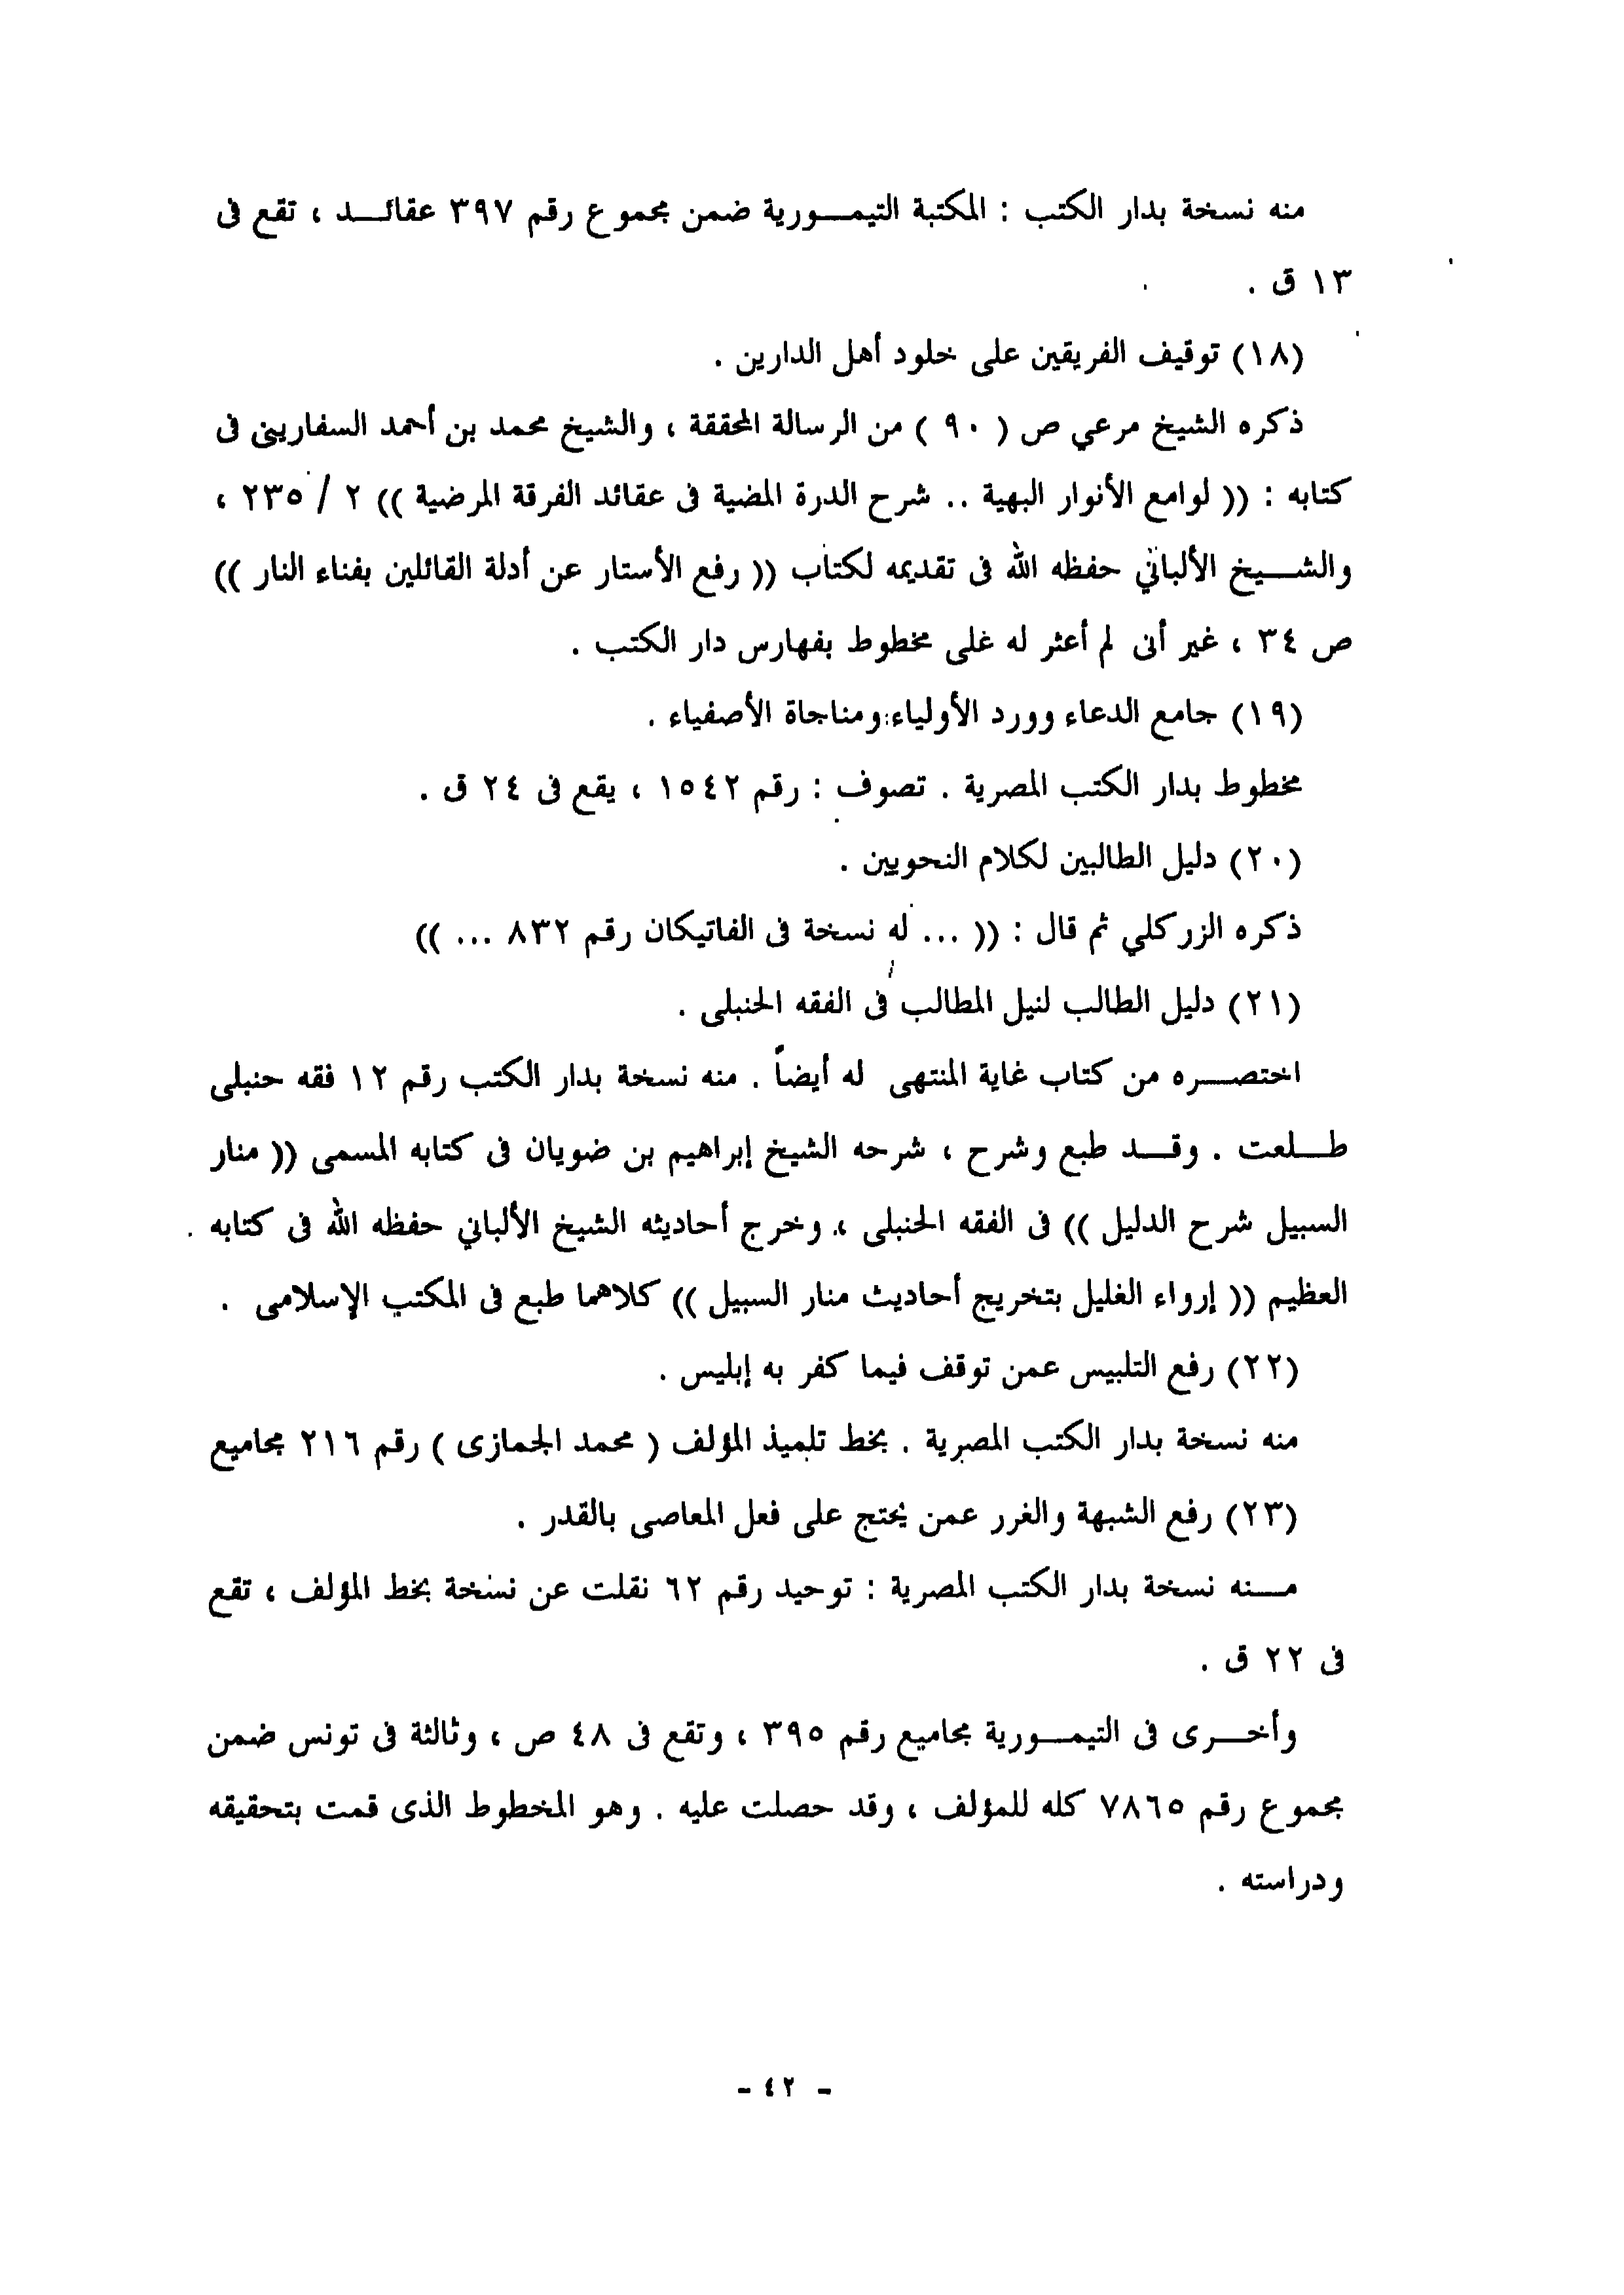 منه نسخة بدار الكتب : المكتبة التيمورية ضمن مجموع رقم ٣٩٧ عقائد ، تقع فى
١٣ ق .
(١٨) توقيف الفريقين على خلود أهل الدارين .
ذكره الشيخ مرعي ص ( ٩٠ ) من الرسالة المحققة ، والشيخ محمد بن أحمد السفارينى فى
كتابه : (( لوامع الأنوار البهية .. شرح الدرة المضية فى عقائد الفرقة المرضية )) ٢ / ٢٣٥ ،
والشيخ الألباني حفظه الله فى تقديمه لكتاب (( رفع الأستار عن أدلة القائلين بفناء النار ))
ص ٣٤ ، غير أنى لم أعثر له على مخطوط بفهارس دار الكتب .
(١٩) جامع الدعاء وورد الأولياء ومناجاة الأصفياء .
مخطوط بدار الكتب المصرية . تصوف : رقم ١٥٤٢ ، يقع فى ٢٤ ق .
(٢٠) دليل الطالبين لكلام النحويين .
ذكره الزركلي ثم قال : (( ... له نسخة فى الفاتيكان رقم ٨٣٢ ... ))
(٢١) دليل الطالب لنيل المطالب فى الفقه الحنبلى .
اختصره من كتاب غاية المنتهى له أيضاً . منه نسخة بدار الكتب رقم ١٢ فقه حنبلى
طلعت . وقد طبع وشرح ، شرحه الشيخ إبراهيم بن ضويان فى كتابه المسمى (( منار
السبيل شرح الدليل )) فى الفقه الحنبلى ، وخرج أحاديثه الشيخ الألباني حفظه الله فى كتابه
العظيم (( إرواء الغليل بتخريج أحاديث منار السبيل )) كلاهما طبع فى المكتب الإسلامى .
(٢٢) رفع التلبيس عمن توقف فيما كفر به إبليس .
منه نسخة بدار الكتب المصرية . بخط تلميذ المؤلف ( محمد الجمازى ) رقم ٢١٦ مجاميع
(٢٣) رفع الشبهة والغرر عمن يحتج على فعل المعاصى بالقدر .
منه نسخة بدار الكتب المصرية : توحيد رقم ٦٢ نقلت عن نسخة بخط المؤلف ، تقع
فى ٢٢ ق .
وأخرى فى التيمورية مجاميع رقم ٣٩٥ ، وتقع فى ٤٨ ص ، وثالثة فى تونس ضمن
مجموع رقم ٧٨٦٥ كله للمؤلف ، وقد حصلت عليه . وهو المخطوط الذى قمت بتحقيقه
ودراسته .
- ٤٢ -